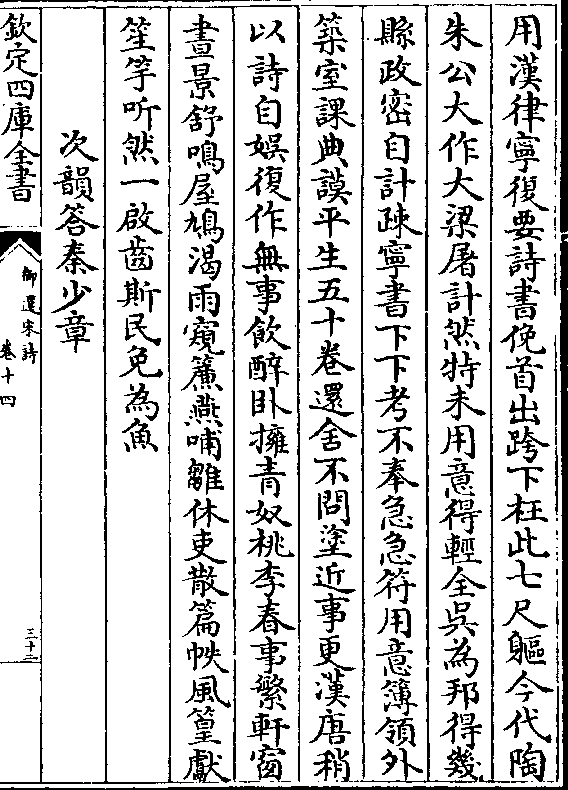 用漢律寧復要詩書俛首出跨下枉此七尺軀今代陶
朱公大作大梁屠計然特未用意得輕全吳為邦得幾
縣政密自計疎寧書下下考不奉急急符用意簿領外
築室課典謨平生五十卷還舍不問塗近事更漢唐稍
以詩自娛復作無事飲醉卧擁青奴桃李春事繁軒窗
晝景舒鳴屋鳩渴雨窺簾燕哺雛休吏散篇帙風篁獻
笙竽听然一啟齒斯民免為魚
次韻答秦少章
欽定四庫全書
御選宋詩
卷十四
三十二